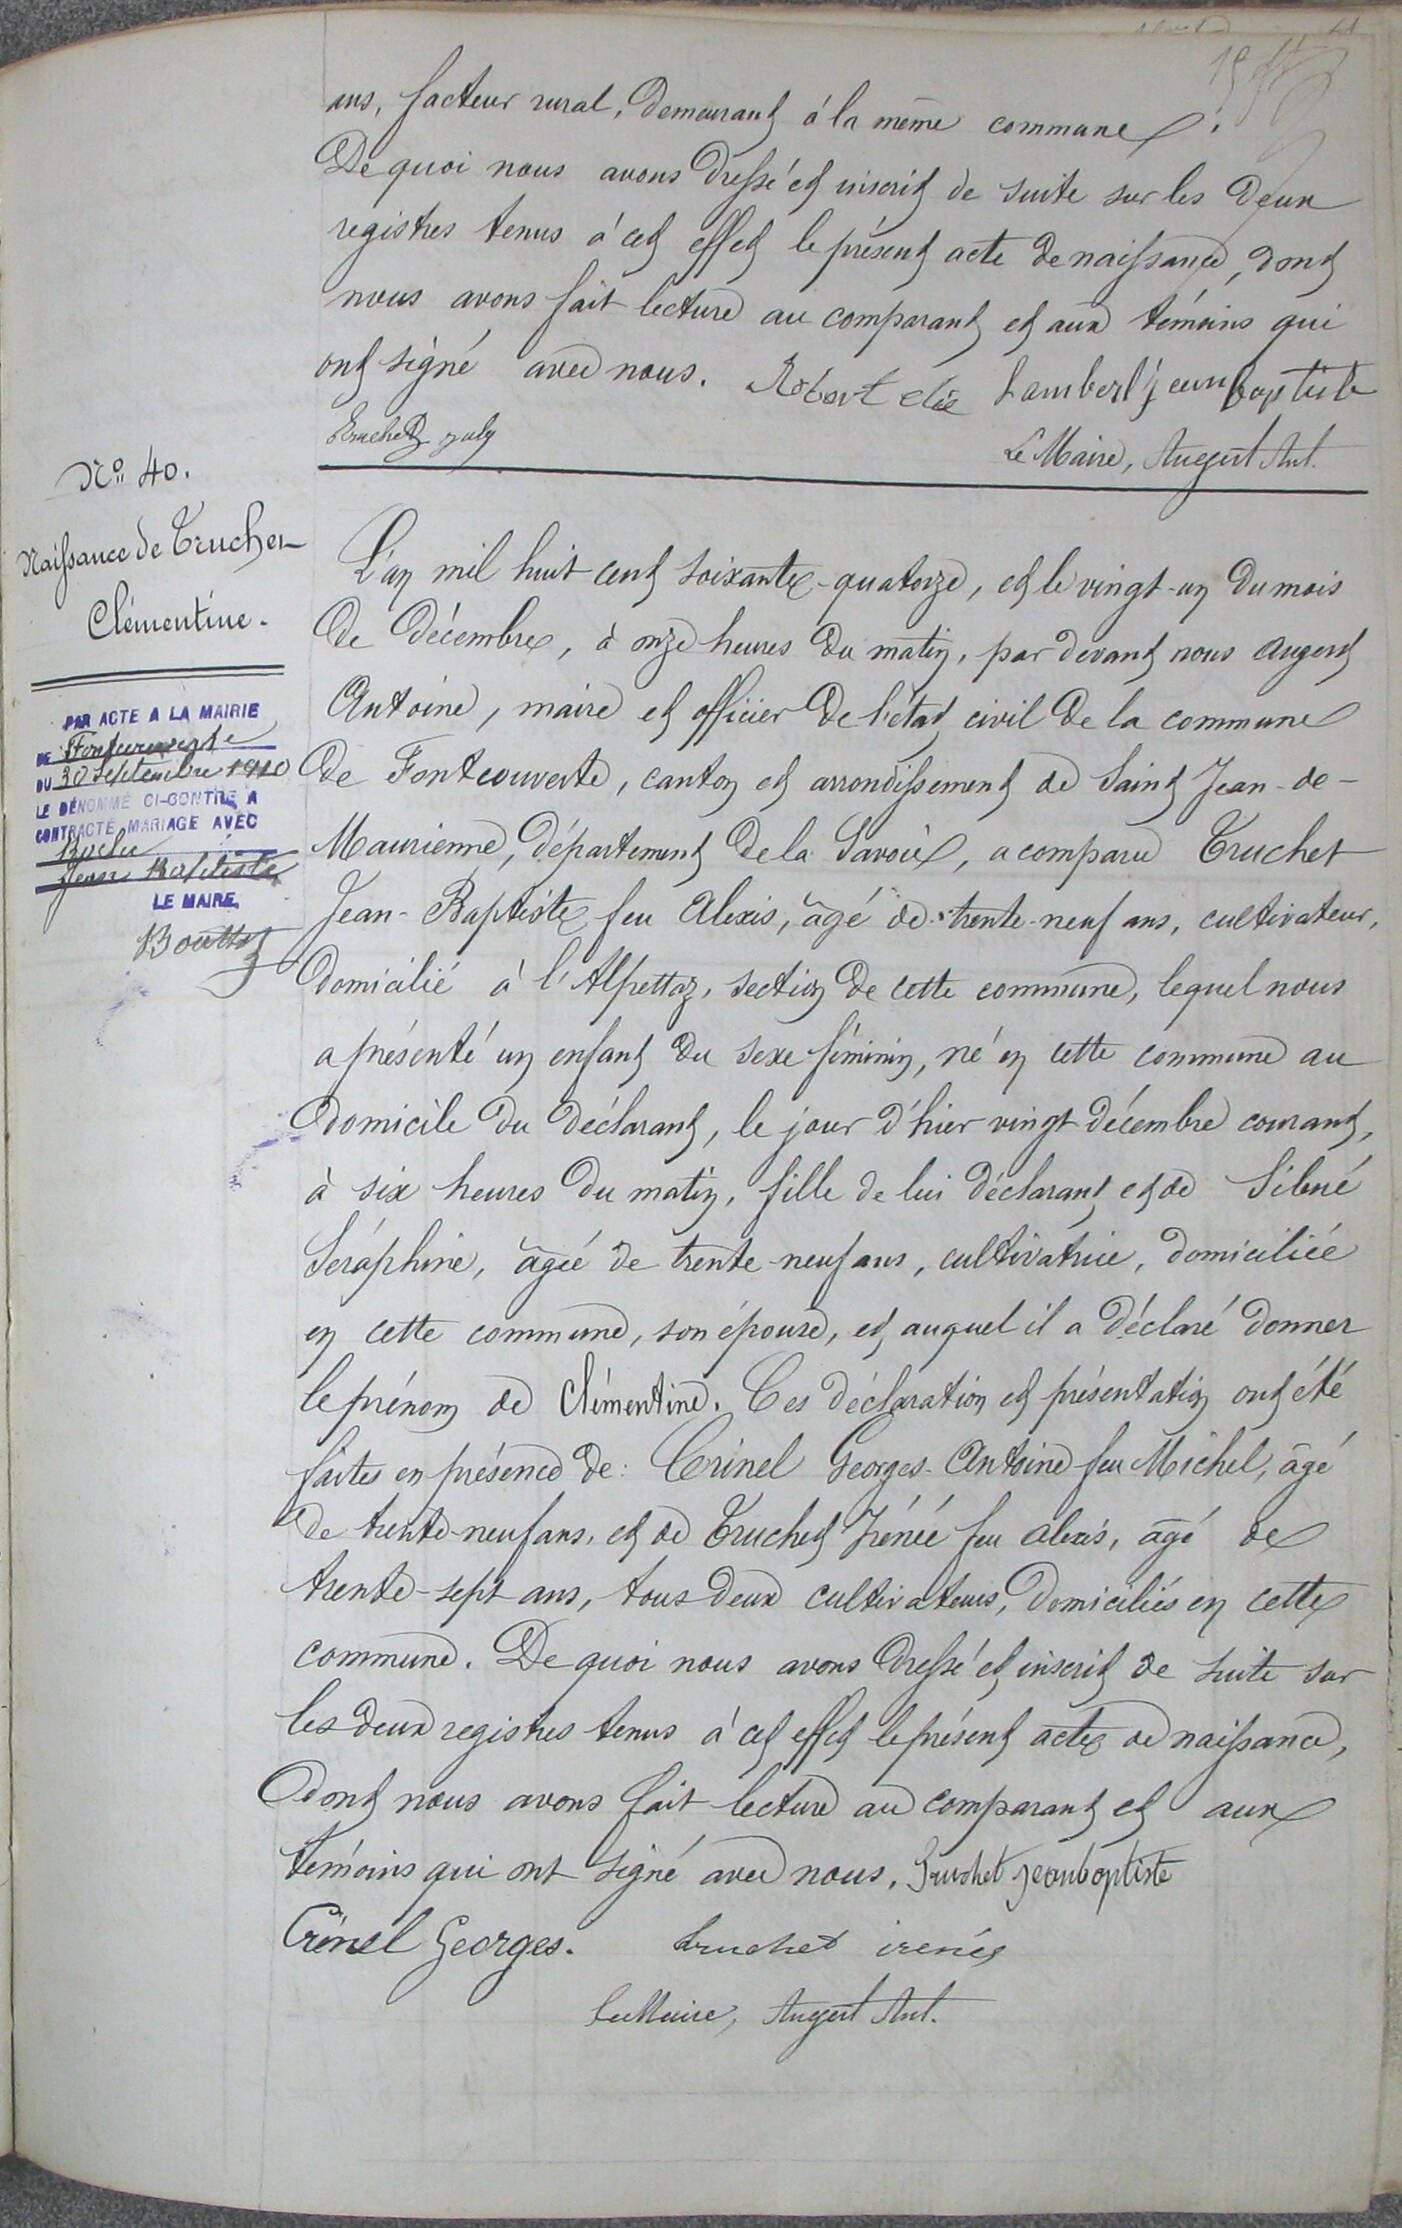 ans, facteur rural, demeurant à la même commune.
De quoi nous avons dressé et inscrit de suite sur les deux
registres tenus à cet effet le présent acte de naissance, dont
nous avons fait lecture au comparant et aux témoins qui
ont signé avec nous. Robert Lambert jean baptiste
Le Maire, Augert Ant.
N° 40.
Naissance de Truchet
Clémentine.
PAR ACTE A LA MAIRIE
DE Fontcouverte
DU 30 septembre 1910
LE DÉNOMMÉ CI-CONTRE A
CONTRACTÉ MARIAGE AVEC
Jean Baptiste
LE MAIRE,
L'an mil huit cent soixante-quatorze, et le vingt-un du mois
de décembre, à onze heures du matin, par devant nous Augert
Antoine, maire et officier de l'état civil de la commune
de Fontcouverte, canton et arrondissement de Saint Jean-de-
Maurienne, département de la Savoie, a comparu Truchet
Jean-Baptiste feu Alexis, âgé de trente-neuf ans, cultivateur,
domicilié à l'Alpettaz, section de cette commune, lequel nous
a présenté un enfant du sexe féminin, né en cette commune au
domicile du déclarant, le jour d'hier vingt décembre courant,
à six heures du matin, fille de lui déclarant et de Sibué
Séraphine, âgée de trente-neuf ans, cultivatrice, domiciliée
en cette commune, son épouse, et auquel il a déclaré donner
le prénom de Clémentine. Ces déclaration et présentation ont été
faites en présence de: Crinel Georges-Antoine feu Michel, âgé
de trente-neuf ans, et de Truchet Irénée feu Alexis, âgé de
trente-sept ans, tous deux cultivateurs, domiciliés en cette
commune. De quoi nous avons dressé et inscrit de suite sur
les deux registres tenus à cet effet le présent acte de naissance,
dont nous avons fait lecture au comparant et aux
témoins qui ont signé avec nous. Truchet jeanbaptiste
Crinel Georges. truchet irenée
Le Maire, Augert Ant.